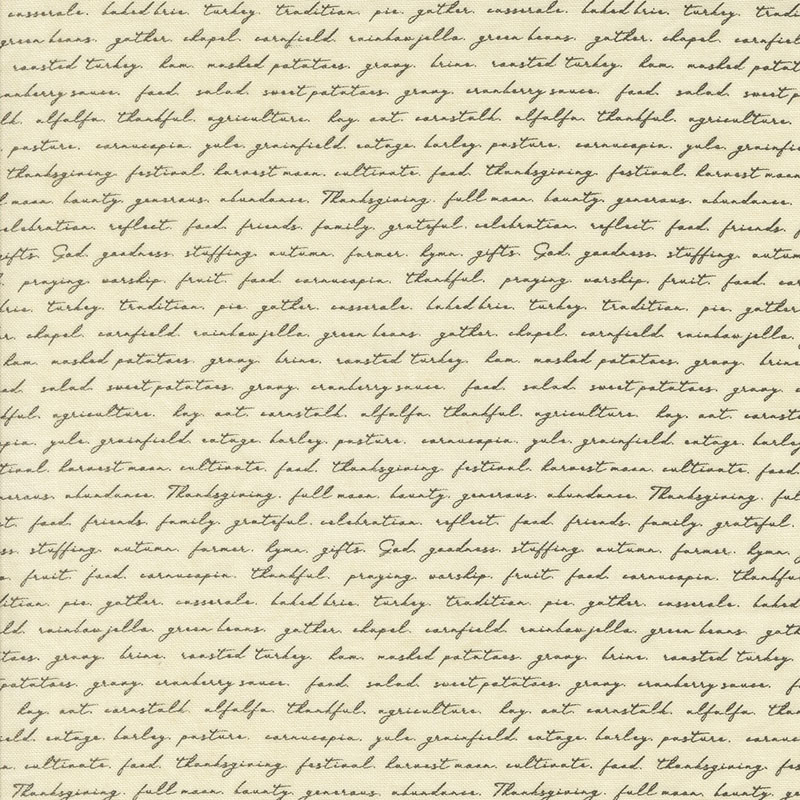 casserale. baked brie. turkey. tradition. pie. gather. casserale. baked brie. turkey. tradi
green beans. gather. chapel. cornfield. rainbow jello. green beans. gather. chapel. cornfiel
roasted turkey. ham. mashed potatoes. gravy. brine. roasted turkey. ham. mashed potat
anberry sauce. food. salad. sweet potatoes. gravy. cranberry sauce. food. salad. sweet p
lk. alfalfa. thankful. agriculture. hay. oat. cornstalk. alfalfa. thankful. agriculture.
. pasture. cornucopia. yule. grainfield. eatage. barley. pasture. cornucopia. yule. grainfie
thanksgiving. festival. harvest moon. cultivate. food. thanksgiving. festival. harvest moon
l moon. bounty. generous. abundance. Thanksgiving. full moon. bounty. generous. abundance.
elebration. reflect. food. friends. family. grateful. celebration. reflect. food. friends. f
gifts. God. goodness. stuffing. autumn. farmer. hymn. gifts. God. goodness. stuffing. autum
. praying. worship. fruit. food. cornucopia. thankful. praying. worship. fruit. food. co
brie. turkey. tradition. pie. gather. casserale. baked brie. turkey. tradition. pie. gather
r. chapel. cornfield. rainbow jello. green beans. gather. chapel. cornfield. rainbow jello.
ham. mashed potatoes. gravy. brine. roasted turkey. ham. mashed potatoes. gravy. brine
od. salad. sweet potatoes. gravy. cranberry sauce. food. salad. sweet potatoes. gravy. c
kful. agriculture. hay. oat. cornstalk. alfalfa. thankful. agriculture. hay. oat. cornsta
pia. yule. grainfield. eatage. barley. pasture. cornucopia. yule. grainfield. eatage. barley
tival. harvest moon. cultivate. food. thanksgiving. festival. harvest moon. cultivate. food.
nerous. abundance. Thanksgiving. full moon. bounty. generous. abundance. Thanksgiving. ful
ct. food. friends. family. grateful. celebration. reflect. food. friends. family. grateful.
ss. stuffing. autumn. farmer. hymn. gifts. God. goodness. stuffing. autumn. farmer. hymn. g
p. fruit. food. cornucopia. thankful. praying. worship. fruit. food. cornucopia. thankfu
dition. pie. gather. casserale. baked brie. turkey. tradition. pie. gather. casserale. baked
eld. rainbow jello. green beans. gather. chapel. cornfield. rainbow jello. green beans. gath
toes. gravy. brine. roasted turkey. ham. mashed potatoes. gravy. brine. roasted turkey.
potatoes. gravy. cranberry sauce. food. salad. sweet potatoes. gravy. cranberry sauce. f
hay. oat. cornstalk. alfalfa. thankful. agriculture. hay. oat. cornstalk. alfalfa. than
eld. eatage. barley. pasture. cornucopia. yule. grainfield. eatage. barley. pasture. cornuc
n. cultivate. food. thanksgiving. festival. harvest moon. cultivate. food. thanksgiving. fes
Thanksgiving. full moon. bounty. generous. abundance. Thanksgiving. full moon. bounty. ge